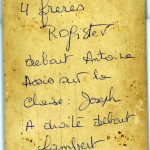 4 frères
Rogister
debout Antoine
Assis sur la
chaise : Joseph
A droite debout
Lambert